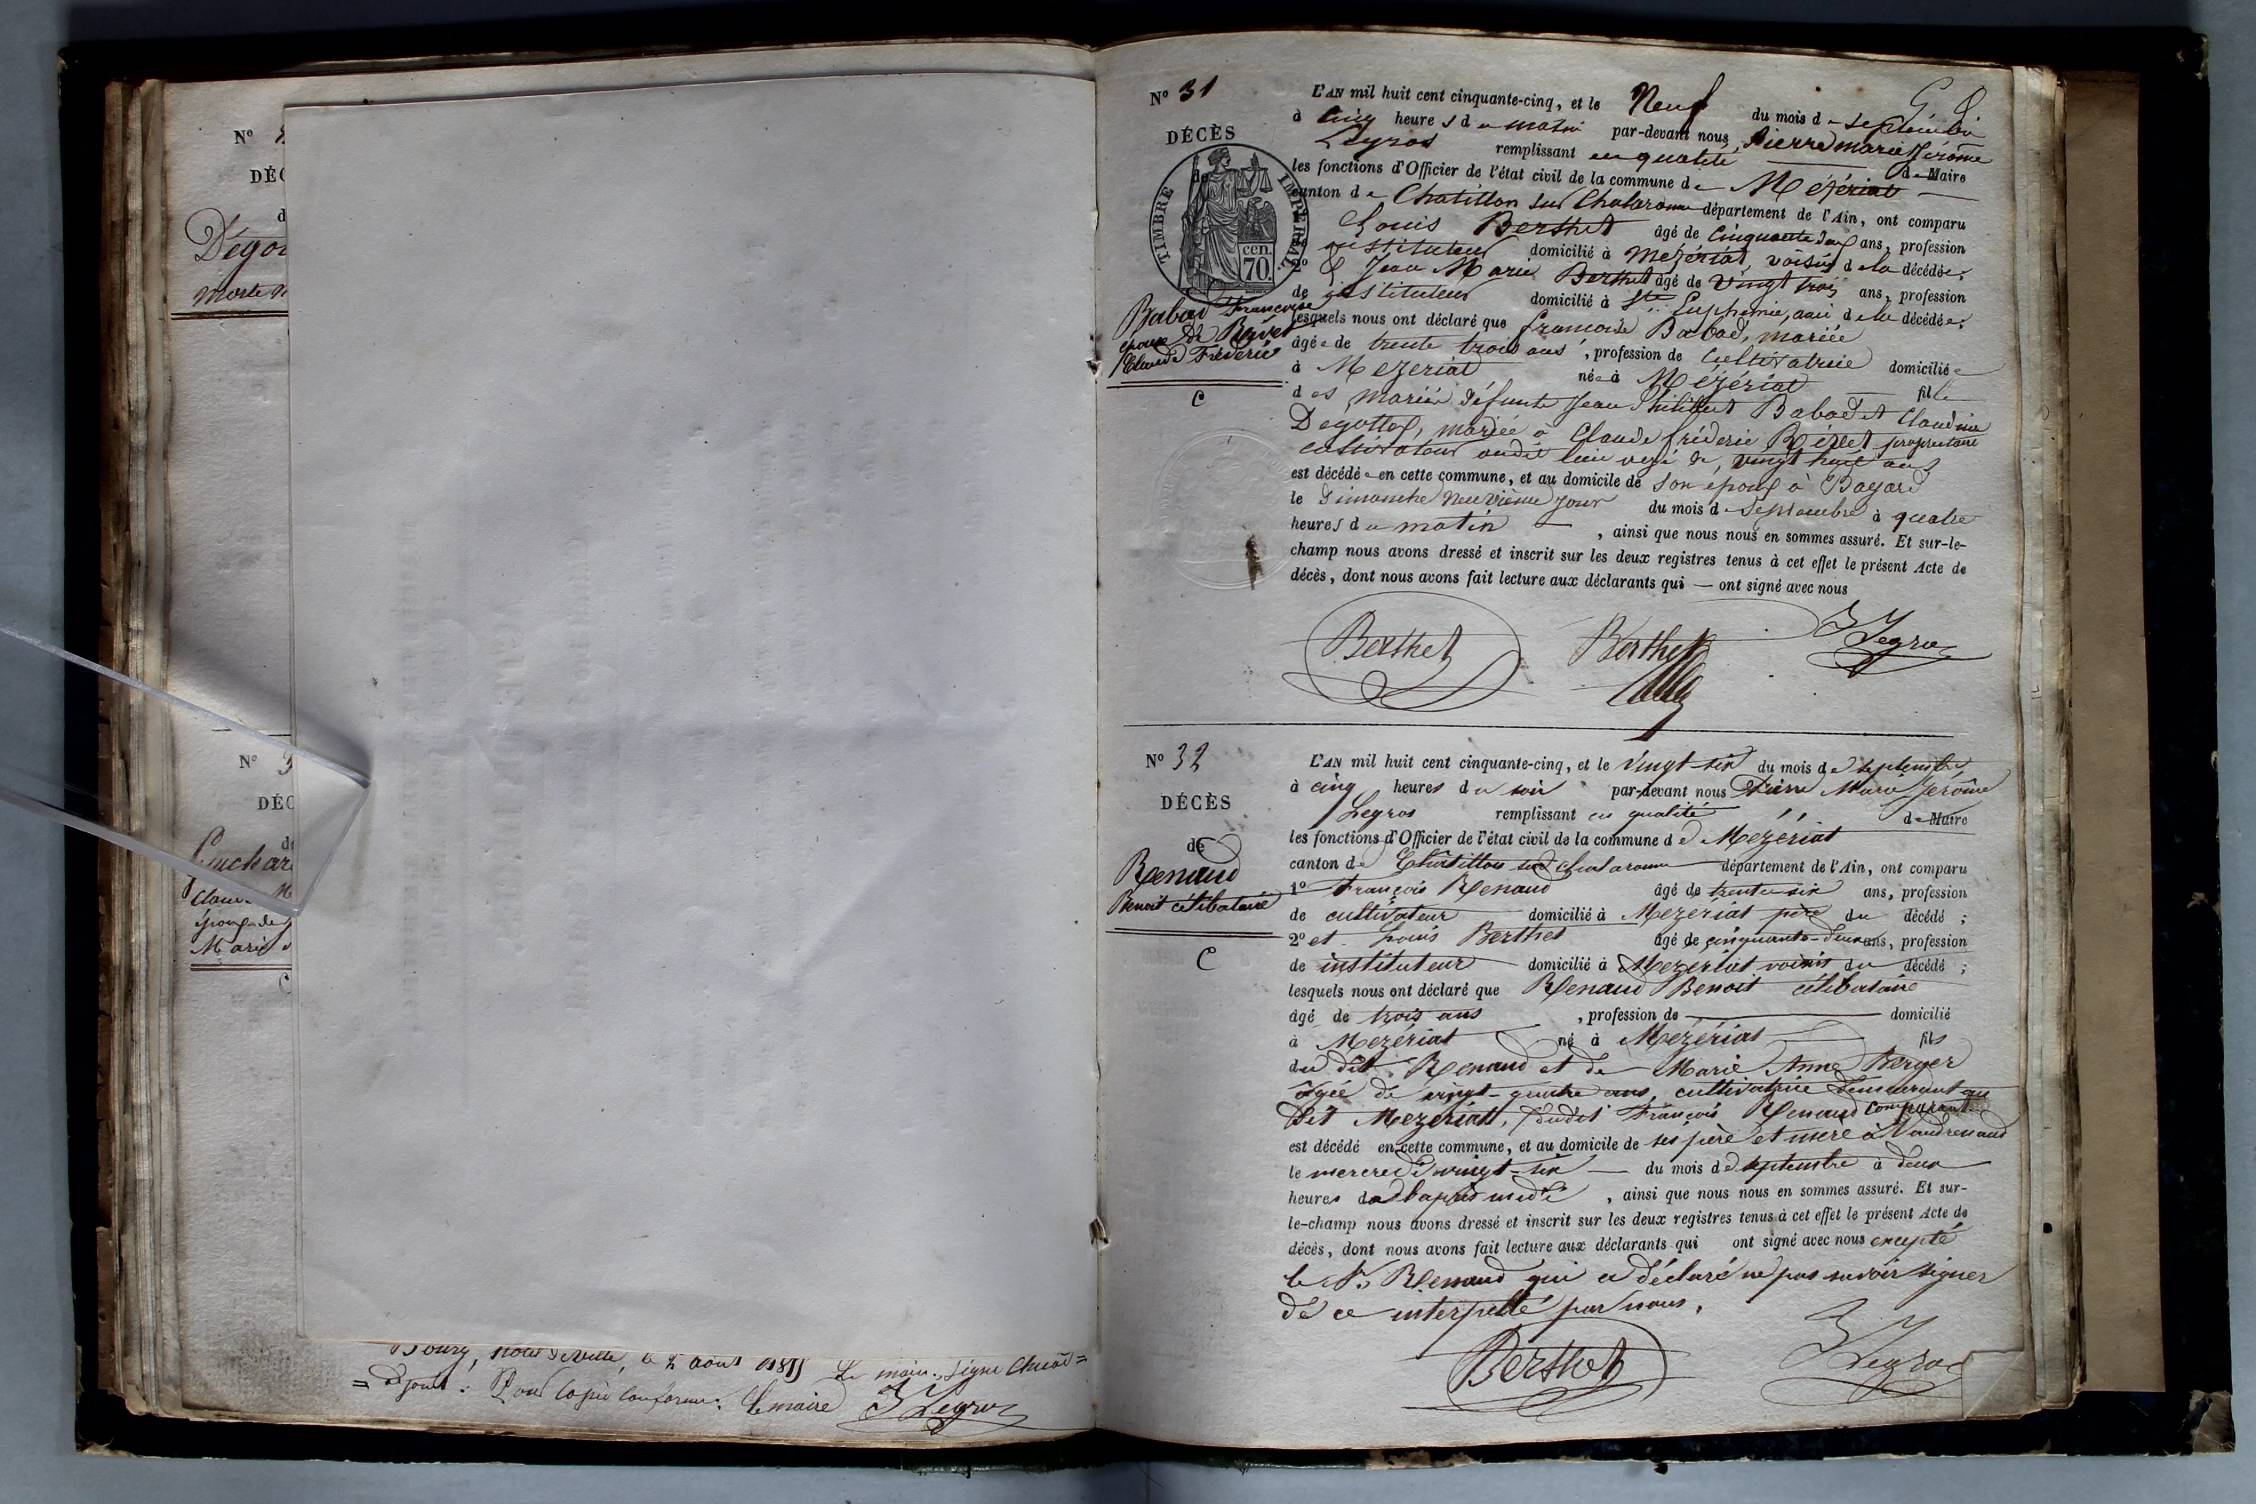 Nº
DÉC
d
Dégou
morte
Nº 3
DÉC
de
Guichar
Clau
épouse de
Marie
C
Bourg, hôtel de ville, le 2 août 1855 Le maire, signé
adjoint. Pour copie conforme. Le maire J Legros
Nº 31
DÉCÈS
de
TIMBRE IMPÉRIAL
70 cen.
Babad Françoise
épouse de Révet
Claude Fréderic
C
L'AN mil huit cent cinquante-cinq, et le Neuf du mois de septembre
à Cinq heures du matin par-devant nous, Pierre marie Jérôme
Legros remplissant en qualité de Maire
les fonctions d'Officier de l'état civil de la commune de Mézériat
canton de Chatillon sur Chalaronne département de l'Ain, ont comparu
Louis Berthet âgé de Cinquante deux ans, profession
instituteur domicilié à Mézériat, voisin de la décédée;
2º & Jean Marie Berthet âgé de Vingt trois ans, profession
de instituteur domicilié à Ste. Euphémie, ami de la décédée;
lesquels nous ont déclaré que françoise Babad, mariée
âgée de trente trois ans, profession de Cultivatrice domiciliée
à Mezeriat née à Mézériat fille
des mariés défunts Jean Philibert Babad et Claudine
Degottex, mariée à Claude fréderic Révet propriétaire
cultivateur audit lieu agé de, vingt huit ans
est décédée en cette commune, et au domicile de son époux à Bayard
le dimanche neuvième jour du mois de Septembre à quatre
heures du matin, ainsi que nous nous en sommes assuré. Et sur-le-
champ nous avons dressé et inscrit sur les deux registres tenus à cet effet le présent Acte de
décès, dont nous avons fait lecture aux déclarants qui — ont signé avec nous
Berthet Berthet J Legros
Nº 32
DÉCÈS
de
Renaud
Benoit célibataire
C
L'AN mil huit cent cinquante-cinq, et le vingt-six du mois de septembre
à cinq heures du soir par-devant nous Pierre Marie Jérôme
Legros remplissant en qualité de Maire
les fonctions d'Officier de l'état civil de la commune de Mézériat
canton de Châtillon sur Chalaronne département de l'Ain, ont comparu
1º François Renaud âgé de trente-six ans, profession
de cultivateur domicilié à Mezériat père du décédé;
2º et Louis Berthet âgé de cinquante-deux ans, profession
de instituteur domicilié à Mezériat voisin du décédé;
lesquels nous ont déclaré que Renaud Benoit célibataire
âgé de trois ans, profession de — domicilié
à Mezériat né à Mezériat fils
du dit Renaud et de Marie Anne Berger
agée de vingt-quatre ans, cultivatrice demeurant au
dit Mezériat, dudit François Renaud comparant
est décédé en cette commune, et au domicile de ses père et mère à Vaudrenand
le mercredi vingt-six du mois de septembre à deux
heures de l'après midi, ainsi que nous nous en sommes assuré. Et sur-
le-champ nous avons dressé et inscrit sur les deux registres tenus à cet effet le présent Acte de
décès, dont nous avons fait lecture aux déclarants qui ont signé avec nous excepté
le Sr. Renaud qui a déclaré ne pas savoir signer
de ce interpellé par nous.
Berthet J Legros